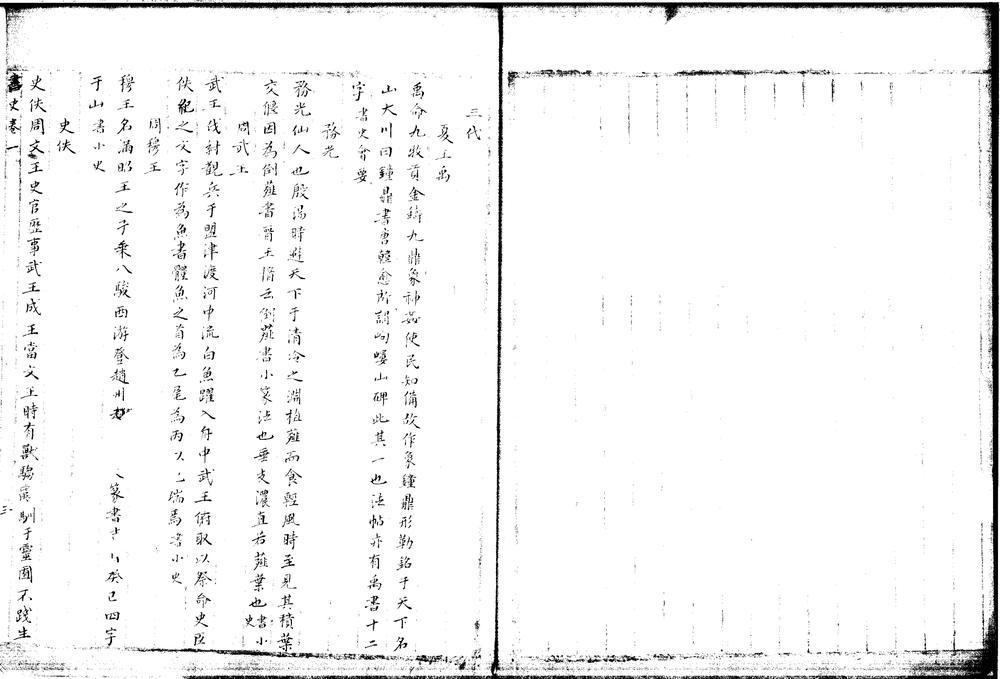 三代
夏王禹
禹命九牧貢金鑄九鼎象神姦使民知備故作象鐘鼎形勒銘于天下名
山大川曰鐘鼎書唐韓愈所謂岣嶁山碑此其一也法帖亦有禹書十二
字書史會要
務光
務光仙人也殷湯時避天下于清泠之淵植薤而食輕風時至見其積葉
交偃因為倒薤書晉王愔云倒薤書小篆法也垂支濃直若薤葉也書小史
周武王
武王伐紂觀兵于盟津渡河中流白魚躍入舟中武王俯取以祭命史臣
佚紀之文字作為魚書體魚之首為乙尾為丙以
周穆王
穆王名滿昭王之子乘八駿西游登趙州 篆書吉 癸巳四字
于山書小史
史佚
史佚周文王史官歷事武王成王當文王時有獸騶虞馴于靈囿不踐生
書史卷一
三